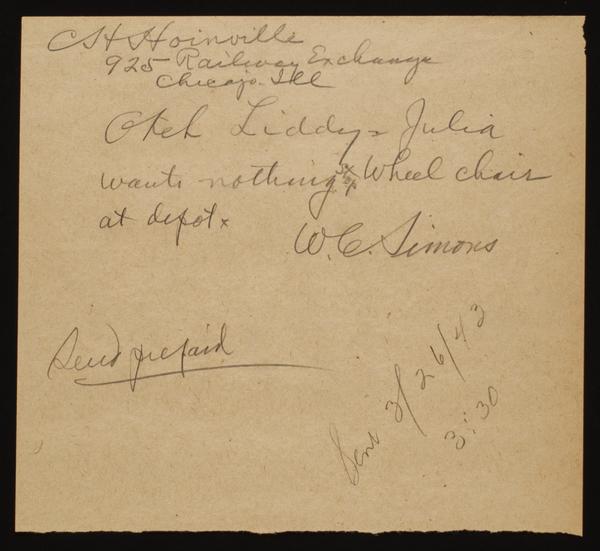 CH Hoinville
925 Railway Exchange
Chicago Ill
Okeh Liddy= Julia
wants nothing x Wheel chair
at depot x
W.C. Simons
Send prepaid
Sent 3/26/43
3:30